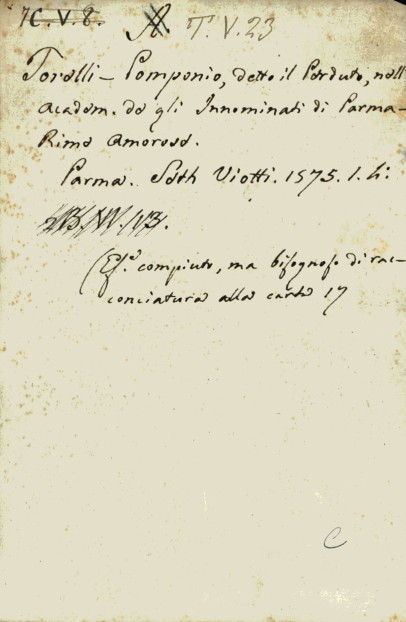 7C. V. 8. T. V. 23
Torelli - Pomponio, detto il Perduto, nell
Academ. de gli Innominati di Parma -
Rime Amorose.
Parma. Seth Viotti. 1575. 1. 4:
(Es.e compiuto, ma bisognoso di rac-
conciatura alla carta 17
C